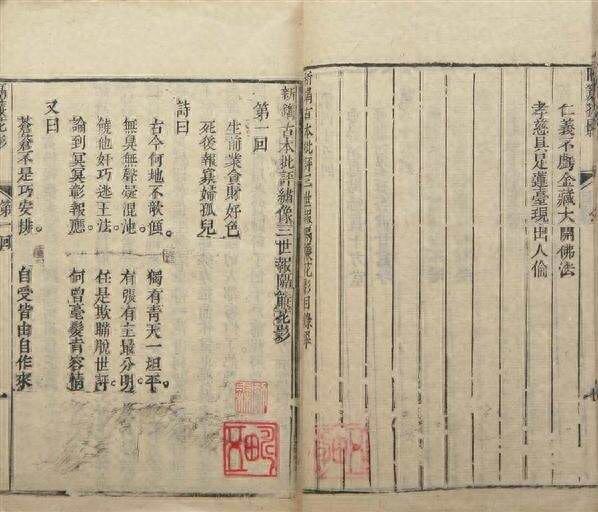 仁義不彫金藏大開佛法
孝慈具足蓮臺現出人倫
新鐫古本批評三世報隔簾花影目錄畢
新鐫古本批評繡像三世報隔簾花影
第一回
生前業貪財好色
死後報寡婦孤兒
詩曰
古今何地不欹傾 獨有青天一坦平
無臭無聲疑混沌 有張有主最分明
饒他奸巧逃王法 任是欺瞞脫世評
論到冥冥彰報應 何曾毫髮肯容情
又曰
蒼蒼不是巧安排 自受皆由自作來
隔簾花影
第一回